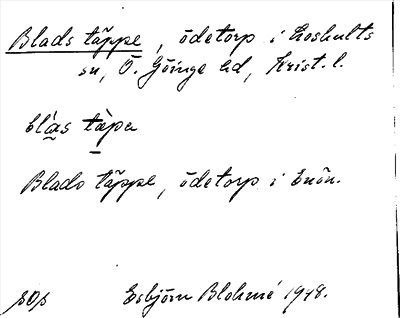 Blads täppe, ödetorp i Loshults
sn, Ö. Göinge hd, Krist. l.
blas täpa
Blads täppe, ödetorp i Enön.
Esbjörn Blohmé 1948.